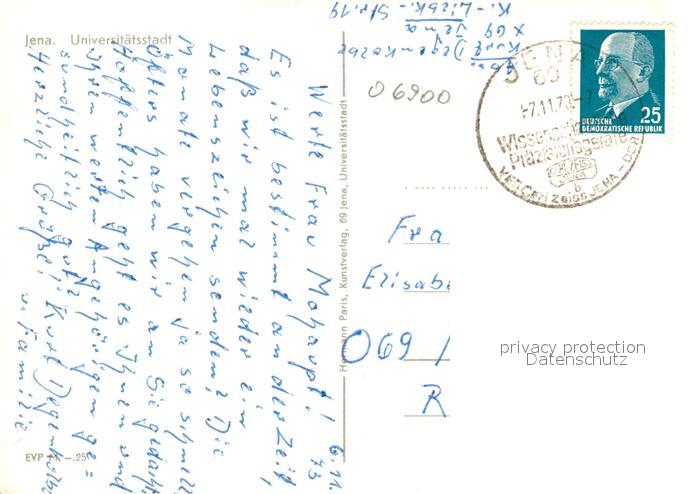 Jena. Universitätsstadt
Werte Frau Moharpt!
6.11.
73
Es ist bestimmt an der Zeit,
daß wir mal wieder ein
Lebenszeichen senden! Die
Monate vergehen ja so schnell
Öfters haben wir an Sie gedacht,
Hoffentlich geht es Ihnen und
Ihren werten Angehörigen ge=
sundheitlich gut.
Herzliche Grüße! Kurt Degenkolbe
u. Familie
EVP M –.25
Hermann Paris, Kunstverlag, 69 Jena, Universitätsstadt
Abs.
Kurt Degenkolbe
X 69 Jena
K.-Liebk.-Str. 19
O 6900
JENA
69
-7.11.73-
Wissenschaftliche
Präzisionsgeräte
CARL ZEISS
JENA
b
VEB Carl Zeiss JENA - DDR
25
DEUTSCHE
DEMOKRATISCHE REPUBLIK
Fra
Elisab
O69 /
R
privacy protection
Datenschutz